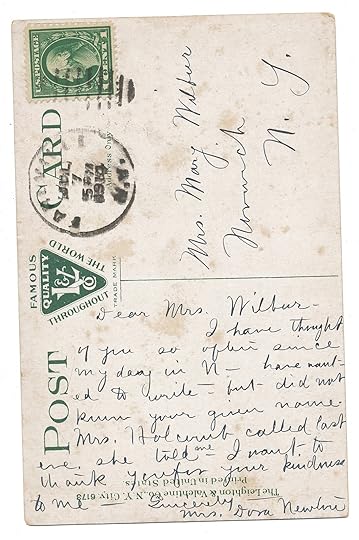 U.S. POSTAGE
1 CENT 1
JUL
7
5 PM
N.Y.
POST CARD
Address Only
FAMOUS
QUALITY
THROUGHOUT
THE WORLD
TRADE MARK
Mrs. Mary Wilbur
Norwich
N. Y.
Dear Mrs. Wilbur -
I have thought
of you so often since
my day in N - have want-
ed to write - but did not
know your given name.
Mrs. Holcomb called last
eve. she told me I want to
thank you for your kindness
to me - Sincerely
Mrs. Dora
The Leighton & Valentine Co., N.Y. City. 6173
Printed in United States